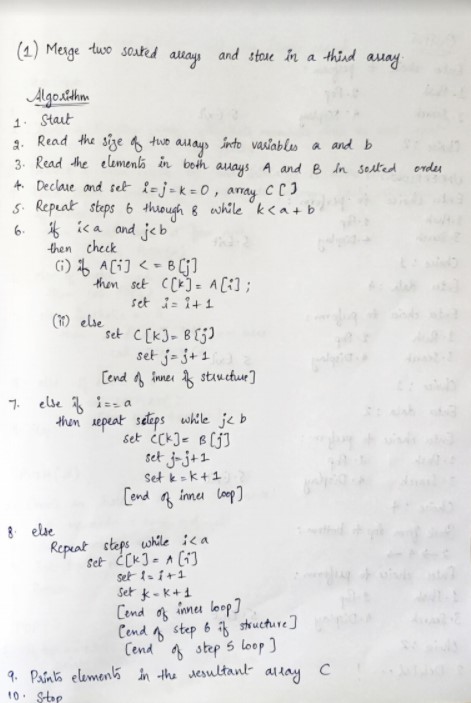 (1) Merge two sorted arrays and store in a third array.
Algorithm
1. Start
2. Read the size of two arrays into variables a and b
3. Read the elements in both arrays A and B in sorted order
4. Declare and set i=j=k=0, array C[]
5. Repeat steps 6 through 8 while k<a+b
6. if i<a and j<b
then check
(i) if A[i] <= B[j]
then set C[k]=A[i];
set i=i+1
(ii) else
set C[k]=B[j]
set j=j+1
[end of inner if structure]
7. else if i==a
then repeat steps while j<b
set C[k]=B[j]
set j=j+1
set k=k+1
[end of inner loop]
8. else
Repeat steps while i<a
set C[k]=A[i]
set i=i+1
set k=k+1
[end of inner loop]
[end of step 6 if structure]
[end of step 5 loop]
9. Prints elements in the resultant array C
10. Stop